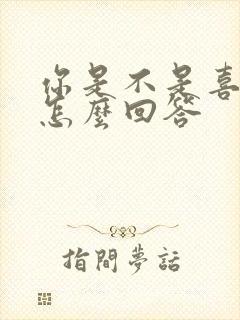 你是不是喜
怎麼回答
指間夢話